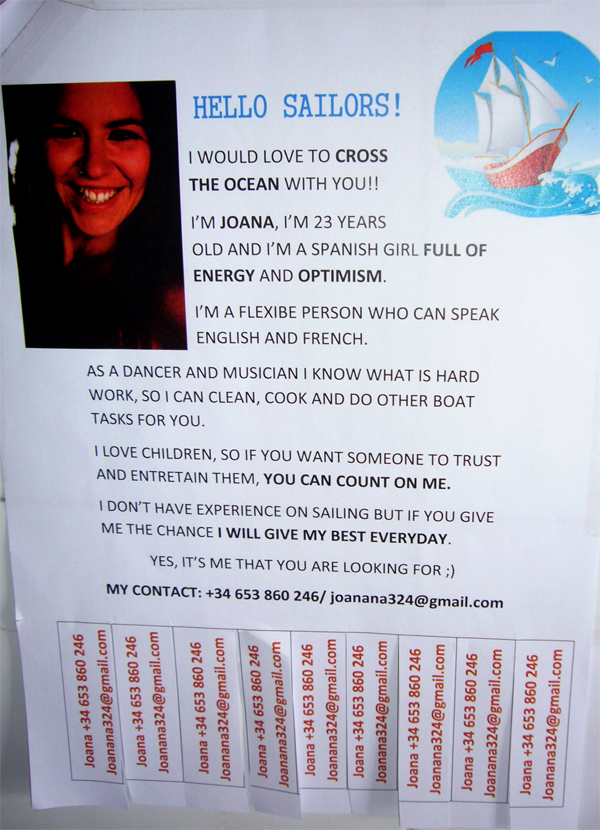 HELLO SAILORS!
I WOULD LOVE TO CROSS
THE OCEAN WITH YOU!!
I'M JOANA, I'M 23 YEARS
OLD AND I'M A SPANISH GIRL FULL OF
ENERGY AND OPTIMISM.
I'M A FLEXIBE PERSON WHO CAN SPEAK
ENGLISH AND FRENCH.
AS A DANCER AND MUSICIAN I KNOW WHAT IS HARD
WORK, SO I CAN CLEAN, COOK AND DO OTHER BOAT
TASKS FOR YOU.
I LOVE CHILDREN, SO IF YOU WANT SOMEONE TO TRUST
AND ENTRETAIN THEM, YOU CAN COUNT ON ME.
I DON'T HAVE EXPERIENCE ON SAILING BUT IF YOU GIVE
ME THE CHANCE I WILL GIVE MY BEST EVERYDAY.
YES, IT'S ME THAT YOU ARE LOOKING FOR ;)
MY CONTACT: +34 653 860 246/ joanana324@gmail.com
Joana +34 653 860 246
Joanana324@gmail.com
Joana +34 653 860 246
Joanana324@gmail.com
Joana +34 653 860 246
Joanana324@gmail.com
Joana +34 653 860 246
Joanana324@gmail.com
Joana +34 653 860 246
Joanana324@gmail.com
Joana +34 653 860 246
Joanana324@gmail.com
Joana +34 653 860 246
Joanana324@gmail.com
Joana +34 653 860 246
Joanana324@gmail.com
Joana +34 653 860 246
Joanana324@gmail.com